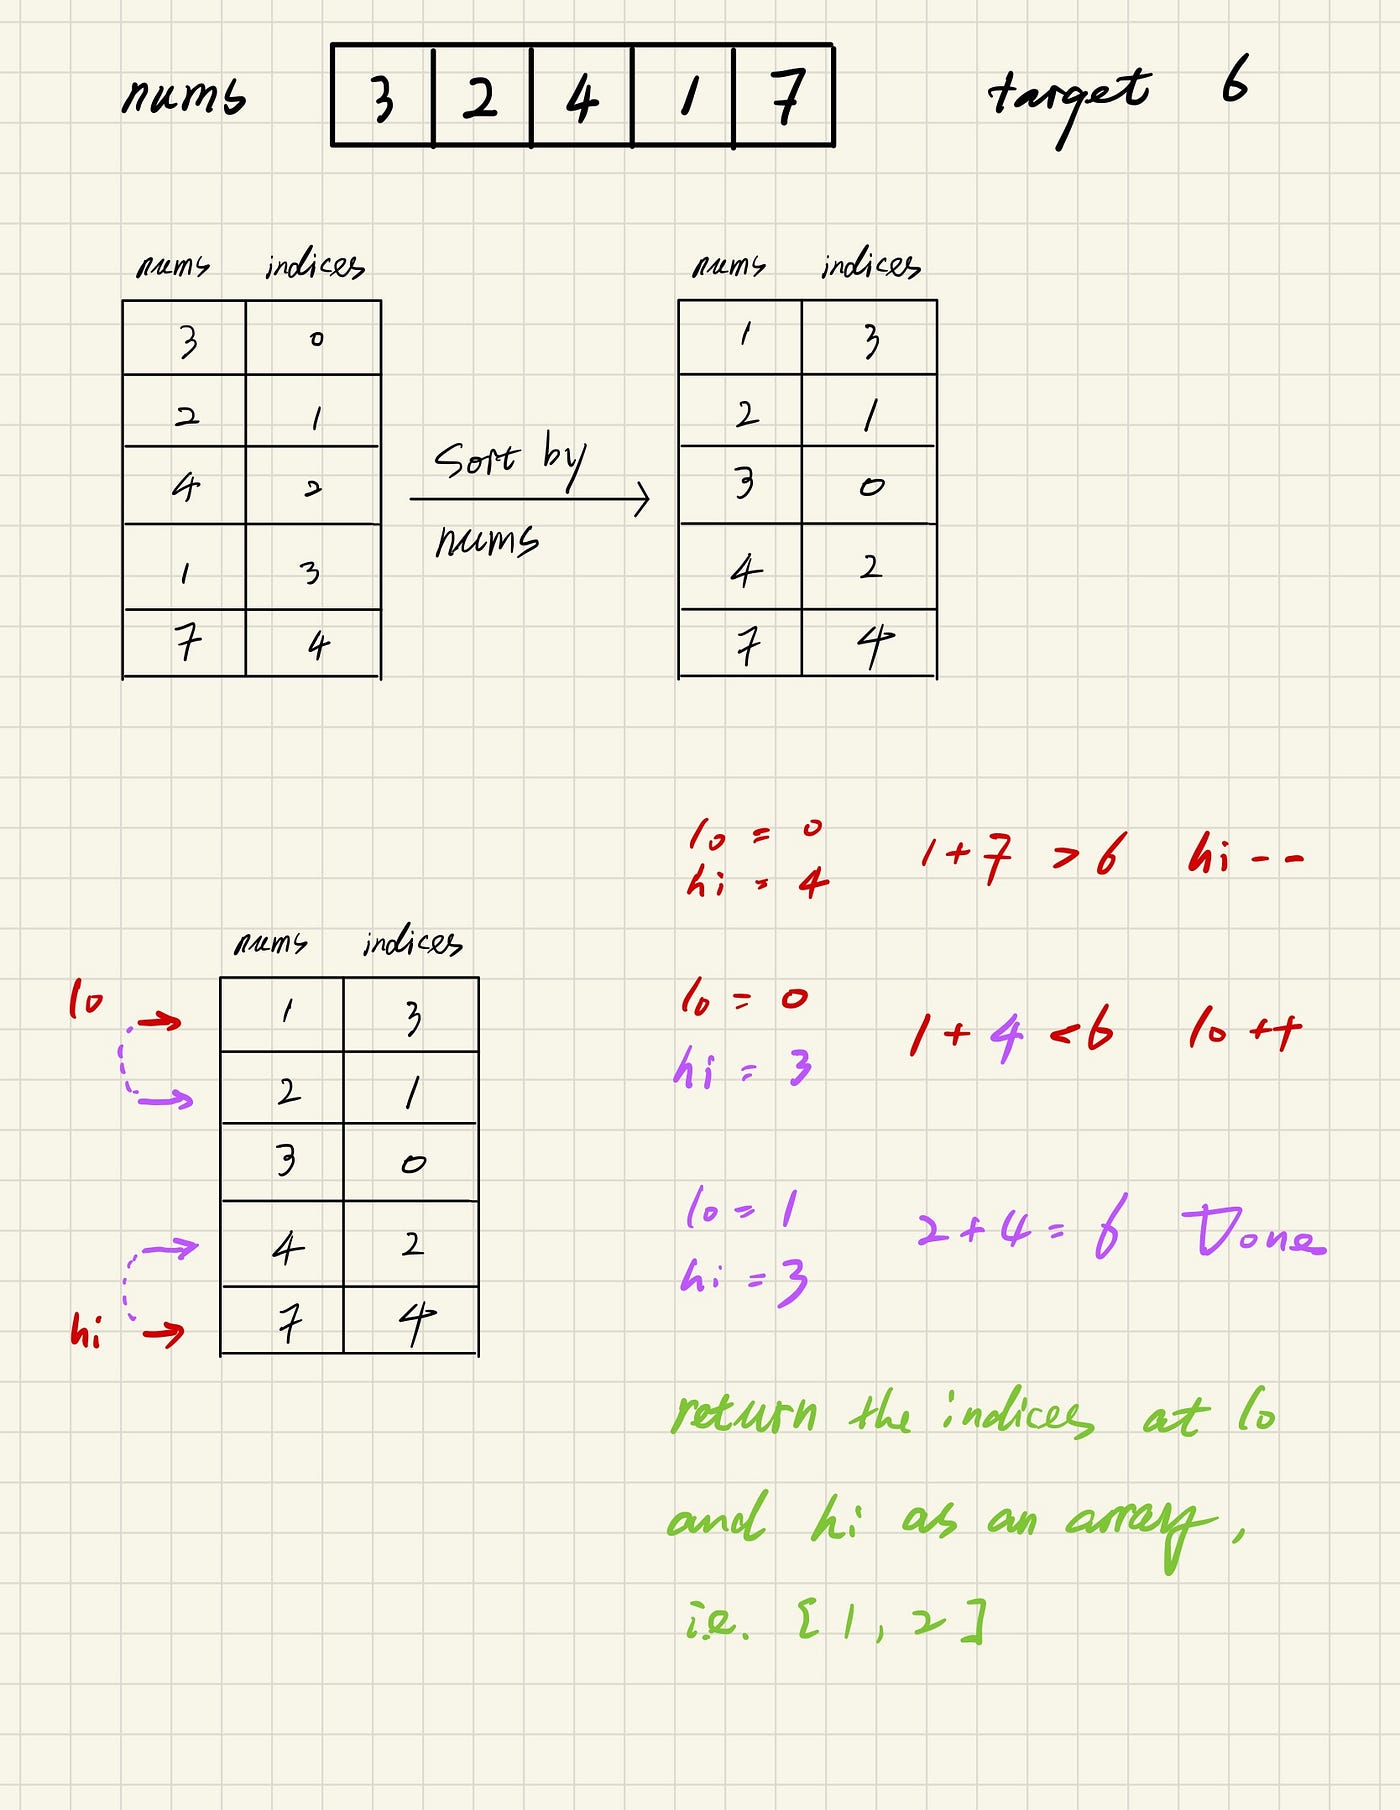 nums 3 2 4 1 7 target 6
nums indices
3 0
2 1
4 2
1 3
7 4
Sort by
nums
nums indices
1 3
2 1
3 0
4 2
7 4
lo = 0
hi = 4
1+7 > 6 hi --
nums indices
lo
hi
1 3
2 1
3 0
4 2
7 4
lo = 0
hi = 3
1 + 4 < 6 lo ++
lo = 1
hi = 3
2 + 4 = 6 Done
return the indices at lo
and hi as an array,
i.e. [1, 2]